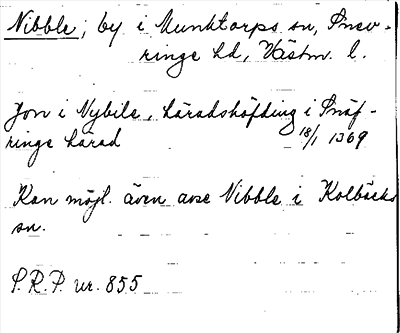 Nibble; by i Munktorps sn, Snev-
ringe hd, Västm. l.
Jon i Nybile, häradshöfding i Snäf-
ringe härad 18/1 1369
Kan möjl. även avse Nibble i Kolbäcks
sn.
S.R.P. nr. 855